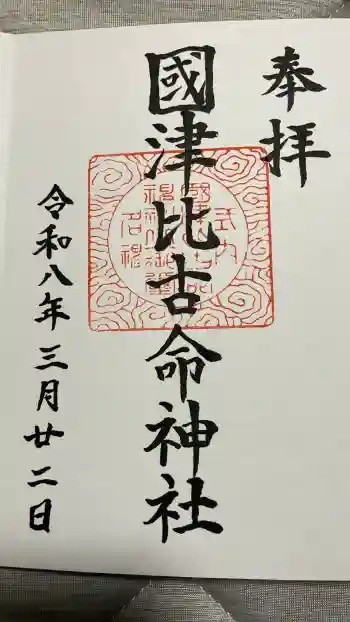 奉拝
國津比古命神社
令和八年三月廿二日